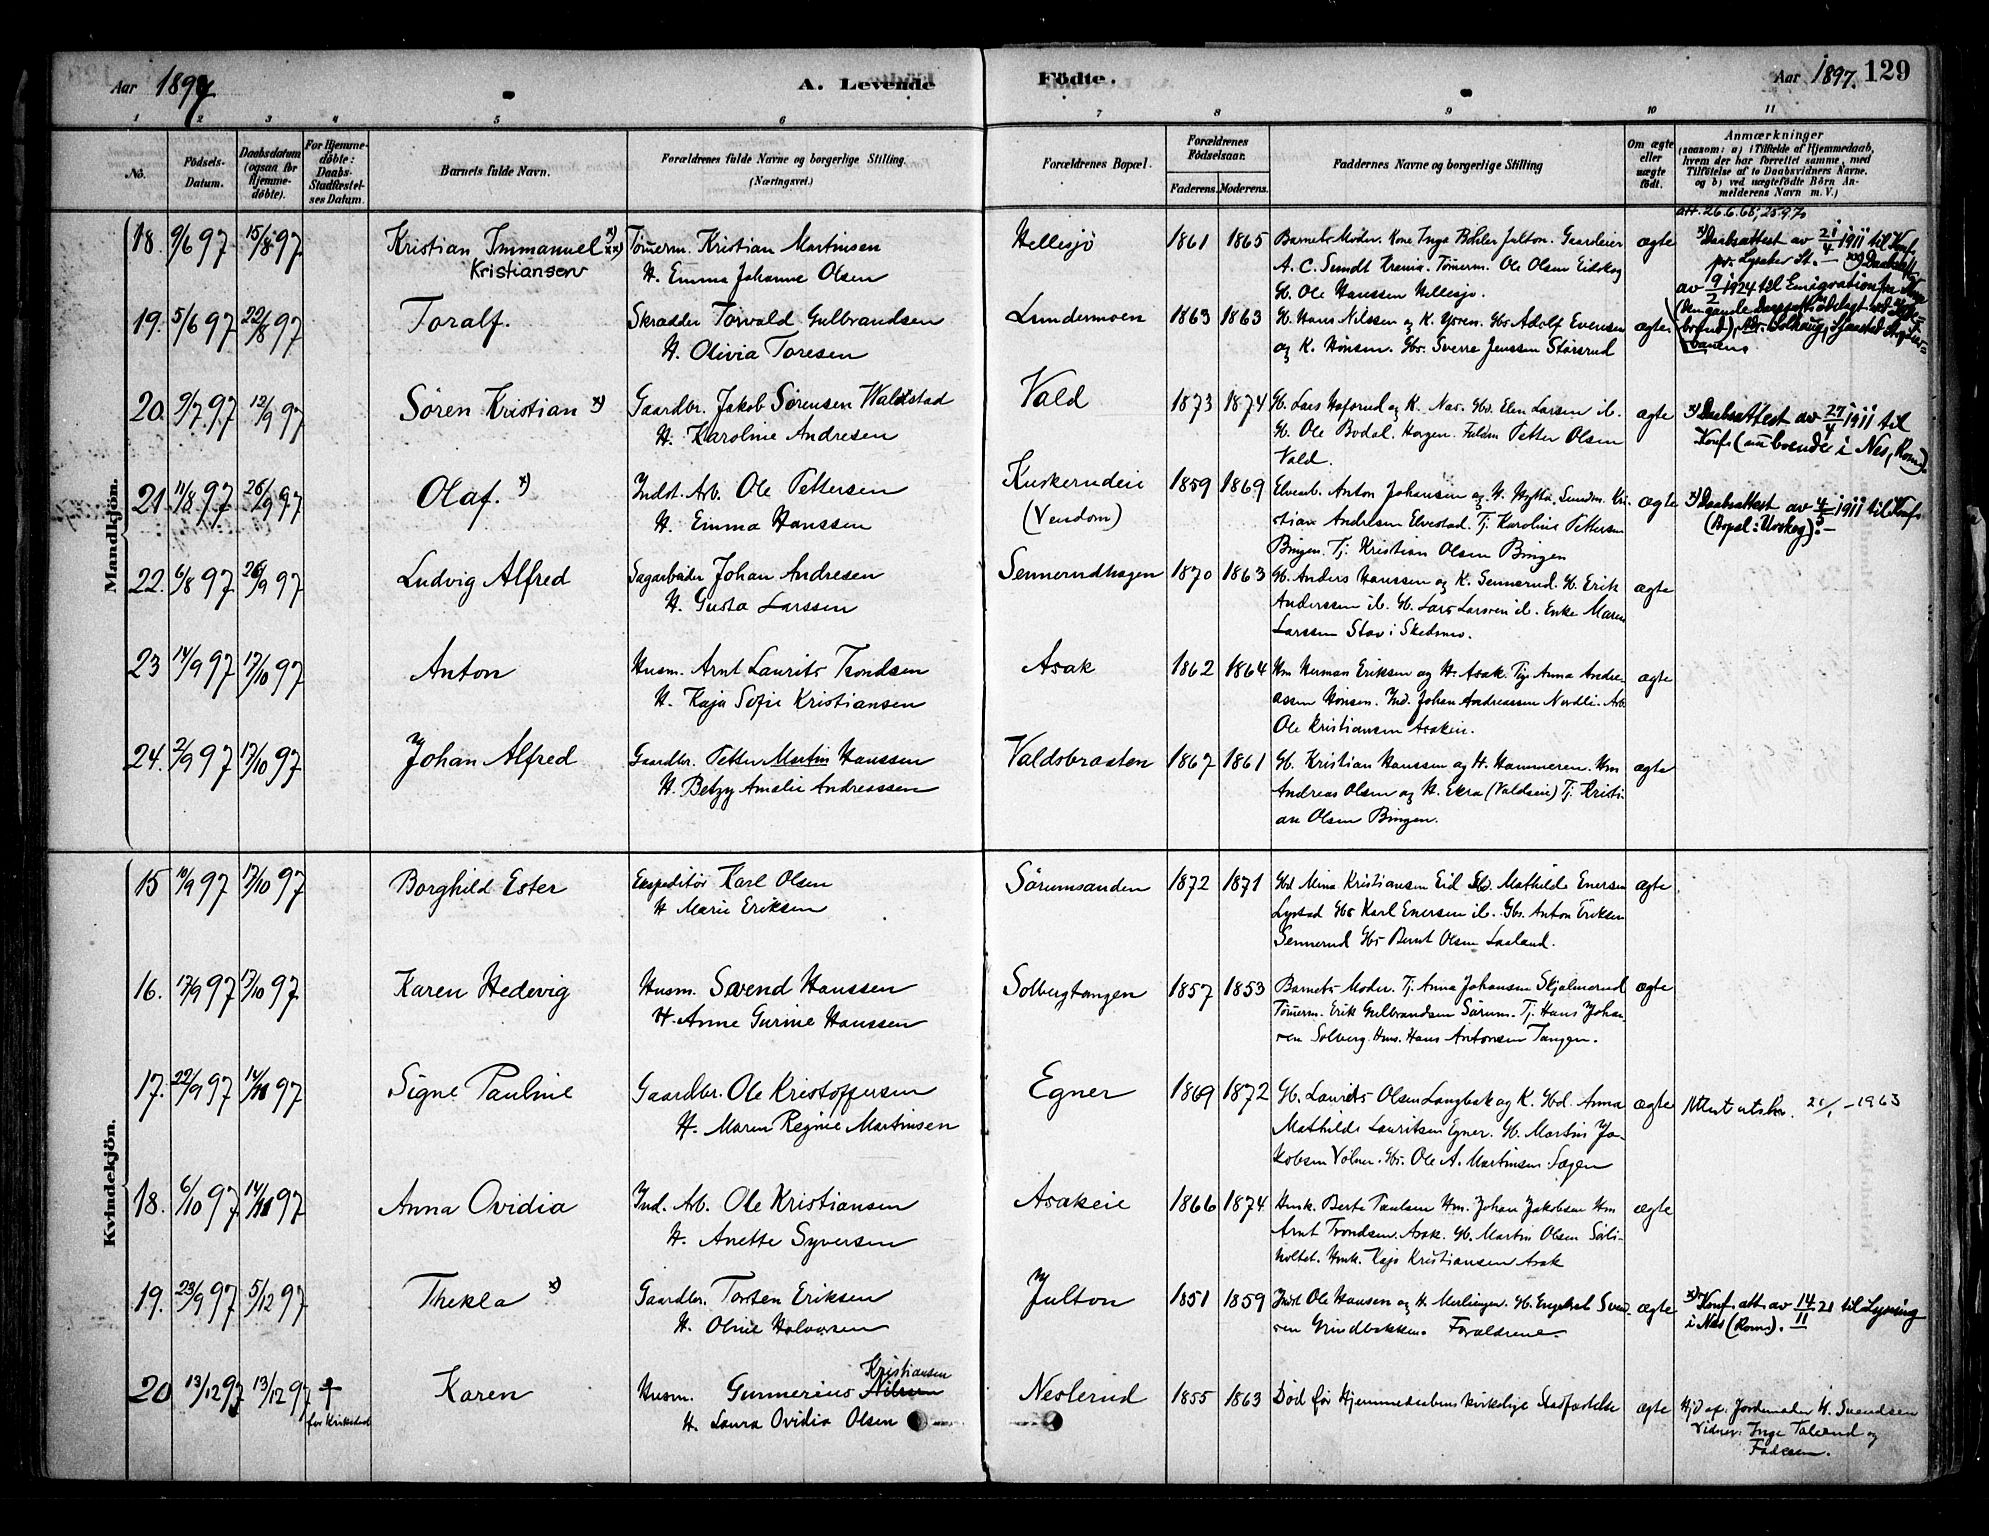 Aar 1897
A. Levende
Födte.
Aar 1897.
129
1 2 3 4 5 6 7 8 9 10 11
No.
Födsels-Datum.
Daabsdatum (ogsaa for Hjemme-döbte).
For Hjemme-döbte: Daabs-Stadfæstel-ses Datum.
Barnets fulde Navn.
Forældrenes fulde Navne og borgerlige Stilling. (Næringsvei.)
Forældrenes Bopæl.
Forældrenes Födselsaar.
Faderens. Moderens.
Faddernes Navne og borgerlige Stilling
Om ægte eller uægte födt.
Anmærkninger
(saasom: a) i Tilfælde af Hjemmedaab, hvem der har forrettet samme, med Tilföielse af to Daabsvidners Navne, og b) ved uægtefödte Börn An-melderens Navn m. V.)
Mandkjön.
18. 9/6 97 15/8 97 Kristian Immanuel x) xx)
Kristiansen
Tömerm. Kristian Martinsen
H. Emma Johanne Olsen
Hellesjö 1861 1865
Barnets Moder. Kone Inga Böhler Julton. Gaardeier
A. C. Sundt Krania. Tömerm. Ole Olsen Eidskog
G. Ole Hanssen Hellesjö.
ægte
att. 26.6.68, 25.9.70
x) Daabsattest av 21/4 1911 til Konf.
av 9/2 1924 til Emigration
19. 5/6 97 22/8 97 Toralf.
Skrædder Torvald Gulbrandsen
H. Olivia Toresen
Lundermoen 1863 1863
G. Hans Nilssen og K. Yvren. Gbs. Adolf Evensen
og K. Hönsen. Gbs. Sverre Jenssen Störsrud
ægte
20. 9/7 97 12/9 97 Sören Kristian x)
Gaardbr. Jakob Sörensen Waldstad
H. Karoline Andresen
Vald 1873 1874
G. Lars Haforud og K. Nas. Gbs. Elen Larsen ib.
G. Ole Bodal. Horgen. Petter Olsen
Vald.
ægte
x) Daabsattest av 27/4 1911 til
Konf. (nu boende i Nes, Rom.)
21 11/8 97 26/9 97 Olaf. x)
Indst. Arb. Ole Pettersen
H. Emma Hanssen
Kuskerudeie
(Vendom)
1859 1869
Elvearb. Anton Johansen og H. Hytta. Sundm. Kri-
stian Andresen Elvestad. Tj. Karoline Pettersen
Bingen. Tj. Kristian Olsen Bingen
ægte
x) Daabsattest av 4/5 1911 til Konf.
(Bopæl: Urskog).
22. 6/8 97 26/9 97 Ludvig Alfred
Sagarbeider Johan Andresen
H. Gusta Larssen
Sennerudhagen 1870 1863
G. Anders Hanssen og K. Sennerud. G. Erik
Anderssen ib. G. Lars Larsen ib. Enke Maren
Larssen Stav i Skedsmo.
ægte
23 14/9 97 17/10 97 Anton
Husm. Arnt Laurits Trondsen
H. Kaja Sofie Kristiansen
Asak 1862 1864
Hm Herman Eriksen og H. Asak. Tj. Anna Andre-
assen Hönsen. Ind. Johan Andreassen Nordli. Arb.
Ole Kristiansen Asakeie.
ægte
24. 2/9 97 17/10 97 Johan Alfred
Gaardbr. Petter Martin Hanssen
H. Betzy Amalie Andreassen
Valdsbraaten 1867 1861
G. Kristian Hanssen og H. Hammeren. Hm
Andreas Olsen og H. Ekra (Valdseie) Tj. Kristi-
an Olsen Bingen.
ægte
Kvindekjön.
15 10/9 97 17/10 97 Borghild Ester
Ekspeditör Karl Olsen
H Marie Eriksen
Sörumsanden 1872 1871
Gbd Mina Kristiansen Eid Gbd. Mathilde Enersen
Lystad Gbs Karl Enersen ib. Gbs. Anton Eriksen
Sennerud Gbs Bernt Olsen Laaland.
ægte
16. 17/9 97 17/10 97 Karen Hedevig
Husm. Svend Hanssen
H. Anne Gurine Hanssen
Solbergtangen 1857 1853
Barnets Moder. Tj. Anna Johansen Skjalmerud
Tömerm. Erik Gulbrandsen Sörum. Tj. Hans Johan-
sen Solberg. Hms. Hans Antonsen Tangen.
ægte
17. 22/9 97 14/11 97 Signe Pauline
Gaardbr. Ole Kristoffersen
H. Maren Regine Martinsen
Egner 1869 1872
G. Laurits Olsen Langbak og K. Gbd. Anna
Mathilde Lauritsen Egner. G. Martin Ja-
kobsen Völner. Gbs. Ole A. Martinsen Sagen
ægte
Attest utskr. 21/1 - 1963
18. 6/10 97 14/11 97 Anna Ovidia
Ind. Arb. Ole Kristiansen
H. Anette Syversen
Asakeie 1866 1874
Husk. Berte Paulsen Hm. Johan Jakobsen Hm
Arnt Trondsen. Asak. G. Martin Olsen Söli-
holtet. Hmk. Kaja Kristiansen Asak
ægte
19. 23/9 97 5/12 97 Thekla x)
Gaardbr. Torsten Eriksen
H. Oline Halvorsen
Julton 1851 1859
Indst Ole Hansen og H. Merlienger. G. Engebret Sven-
sen Grindbakken. Forældrene.
ægte
x) Konf. att. av 14/11 21 til Lysning
i Nes (Rom.).
20 13/12 97 13/12 97 †
för Kirkebud
Karen
Husm. Gunnerius Nilsen Kristiansen
H. Laura Ovidia Olsen
Neslerud 1855 1863
Död för Hjemmedaabens kirkelige Stadfæstelse
ægte
Hjd af: Jordemoder H. Svendsen
Vidner: Inge Talerud og
Faderen.